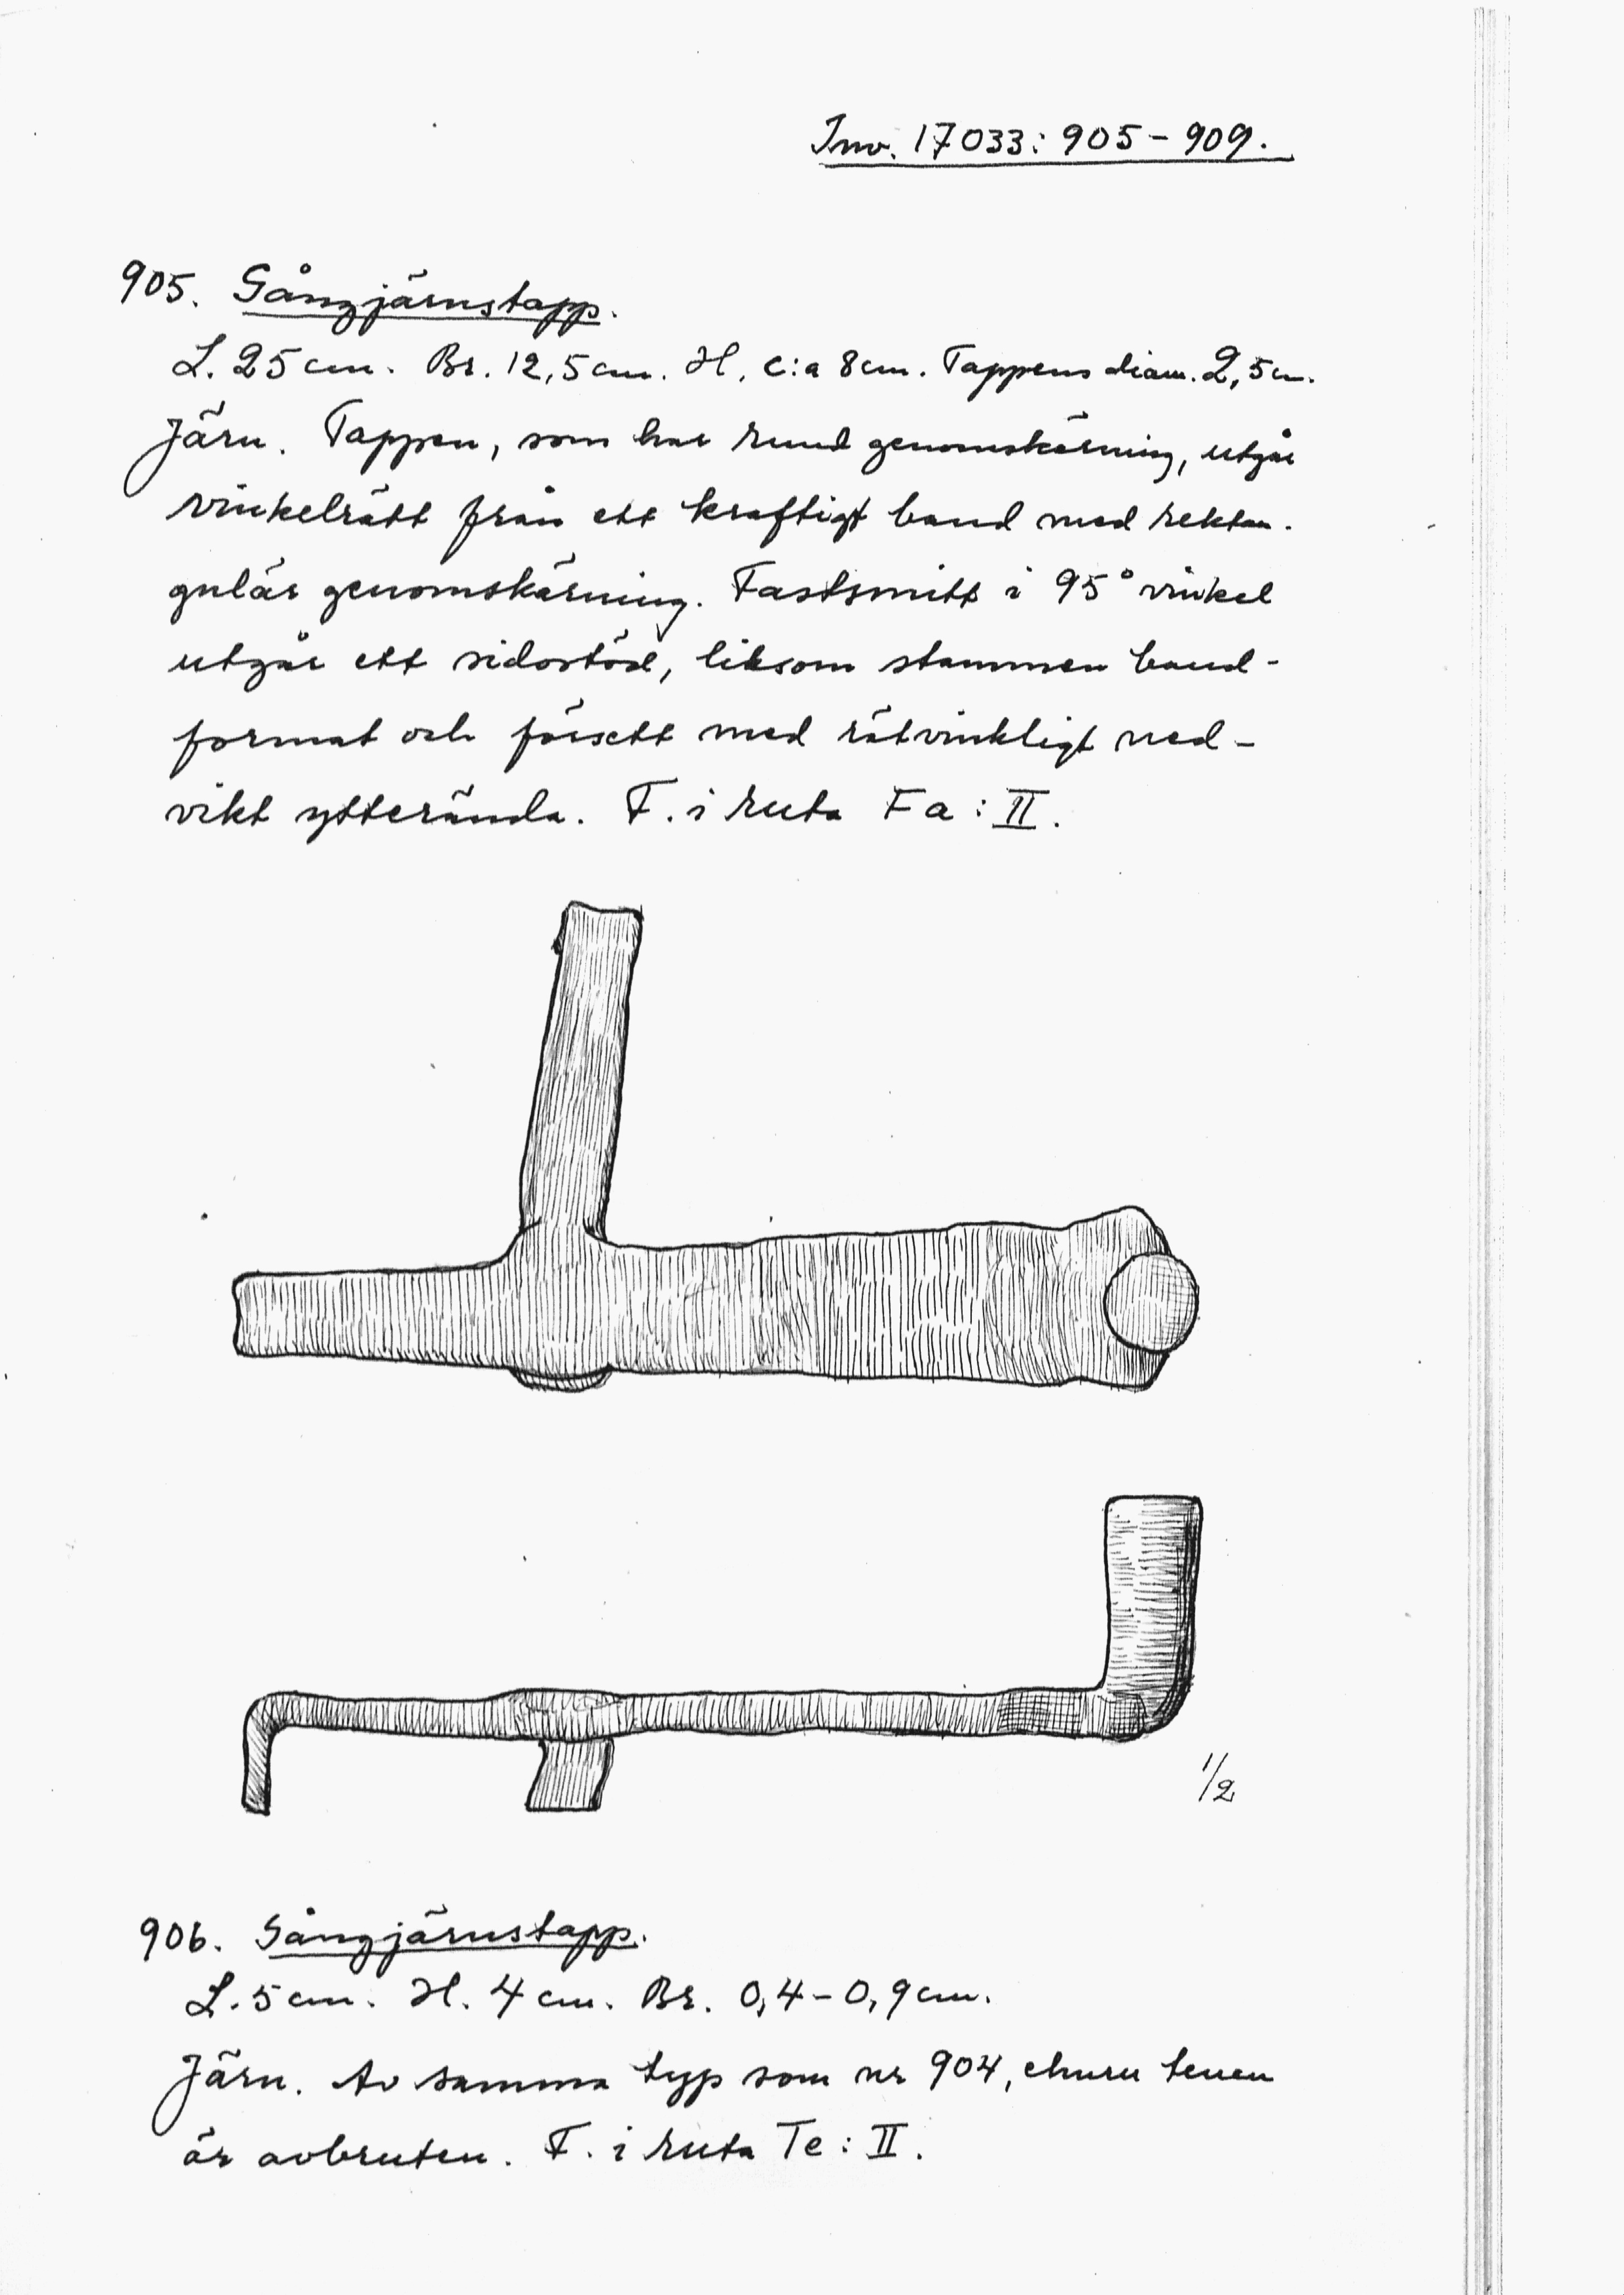 Inv. 17033: 905 – 909.
905. Gångjärnstapp.
L. 25 cm. Br. 12,5 cm. H. c:a 8 cm. Tappens diam. 2,5 cm.
Järn. Tappen, som har rund genomskärning, utgår
vinkelrätt från ett kraftigt band med rektan-
gulär genomskärning. Fastsmitt i 95° vinkel
utgår ett sidostöd, liksom stammen band-
format och försett med rätvinkligt ned-
vikt ytterända. F. i ruta Fa: II.
1/2
906. Gångjärnstapp.
L. 5 cm. H. 4 cm. Br. 0,4 – 0,9 cm.
Järn. Av samma typ som nr 904, ehuru tenen
är avbruten. F. i ruta Te: II.